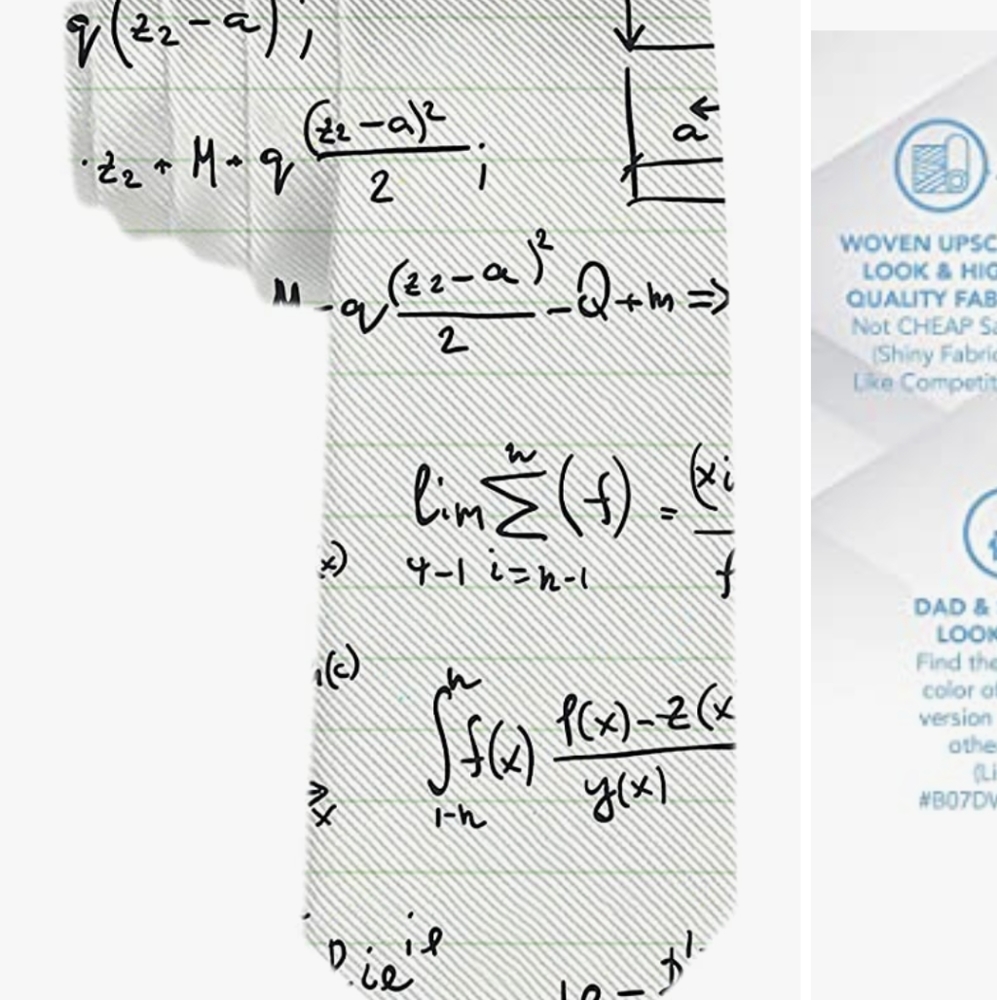 q(z₂-a);
·z₂ + M + q (z₂-a)²/2 ;
a
M - q (z₂-a)²/2 - Q + m ⇒
lim ∑ (f) = (xi
n
4-1 i=n-1
f
x)
(c)
∫ f(x) f(x)-z(x
n
y(x)
1-n
x
WOVEN UPSC
LOOK & HIG
QUALITY FAB
Not CHEAP Sa
(Shiny Fabric
Like Competit
DAD &
LOOK
Find the
color of
version
othe
(Li
#B07DV